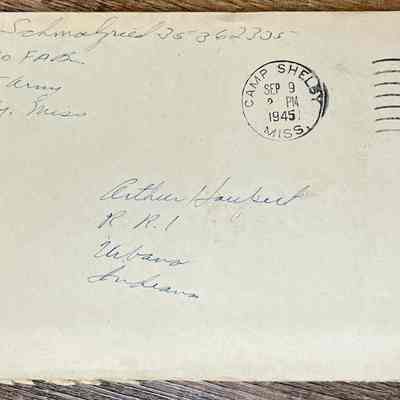 Schmalzried 35-362335
FABn
Army
Miss
CAMP SHELBY
SEP 9
PM
1945
MISS.
Arthur Haupert
R. R. 1
Urbana
Indiana